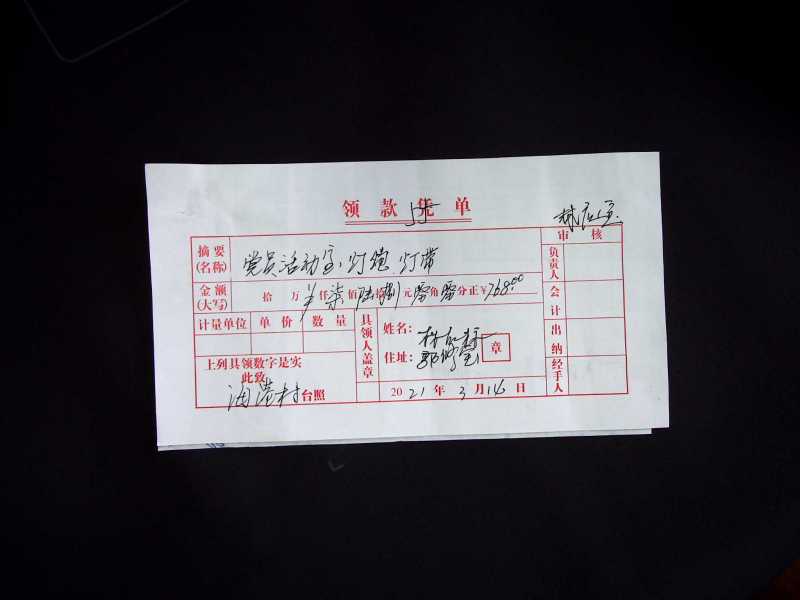 领款凭单
审核
摘要(名称) 党员活动室、灯炮 灯带
金额(大写) 拾 万 仟柒佰陆拾捌元零角零分正¥768.00
计量单位 单价 数量
具领人盖章
姓名：
住址：
章
上列具领数字是实
此致
油港村台照
2021年3月16日
负责人
会计
出纳
经手人